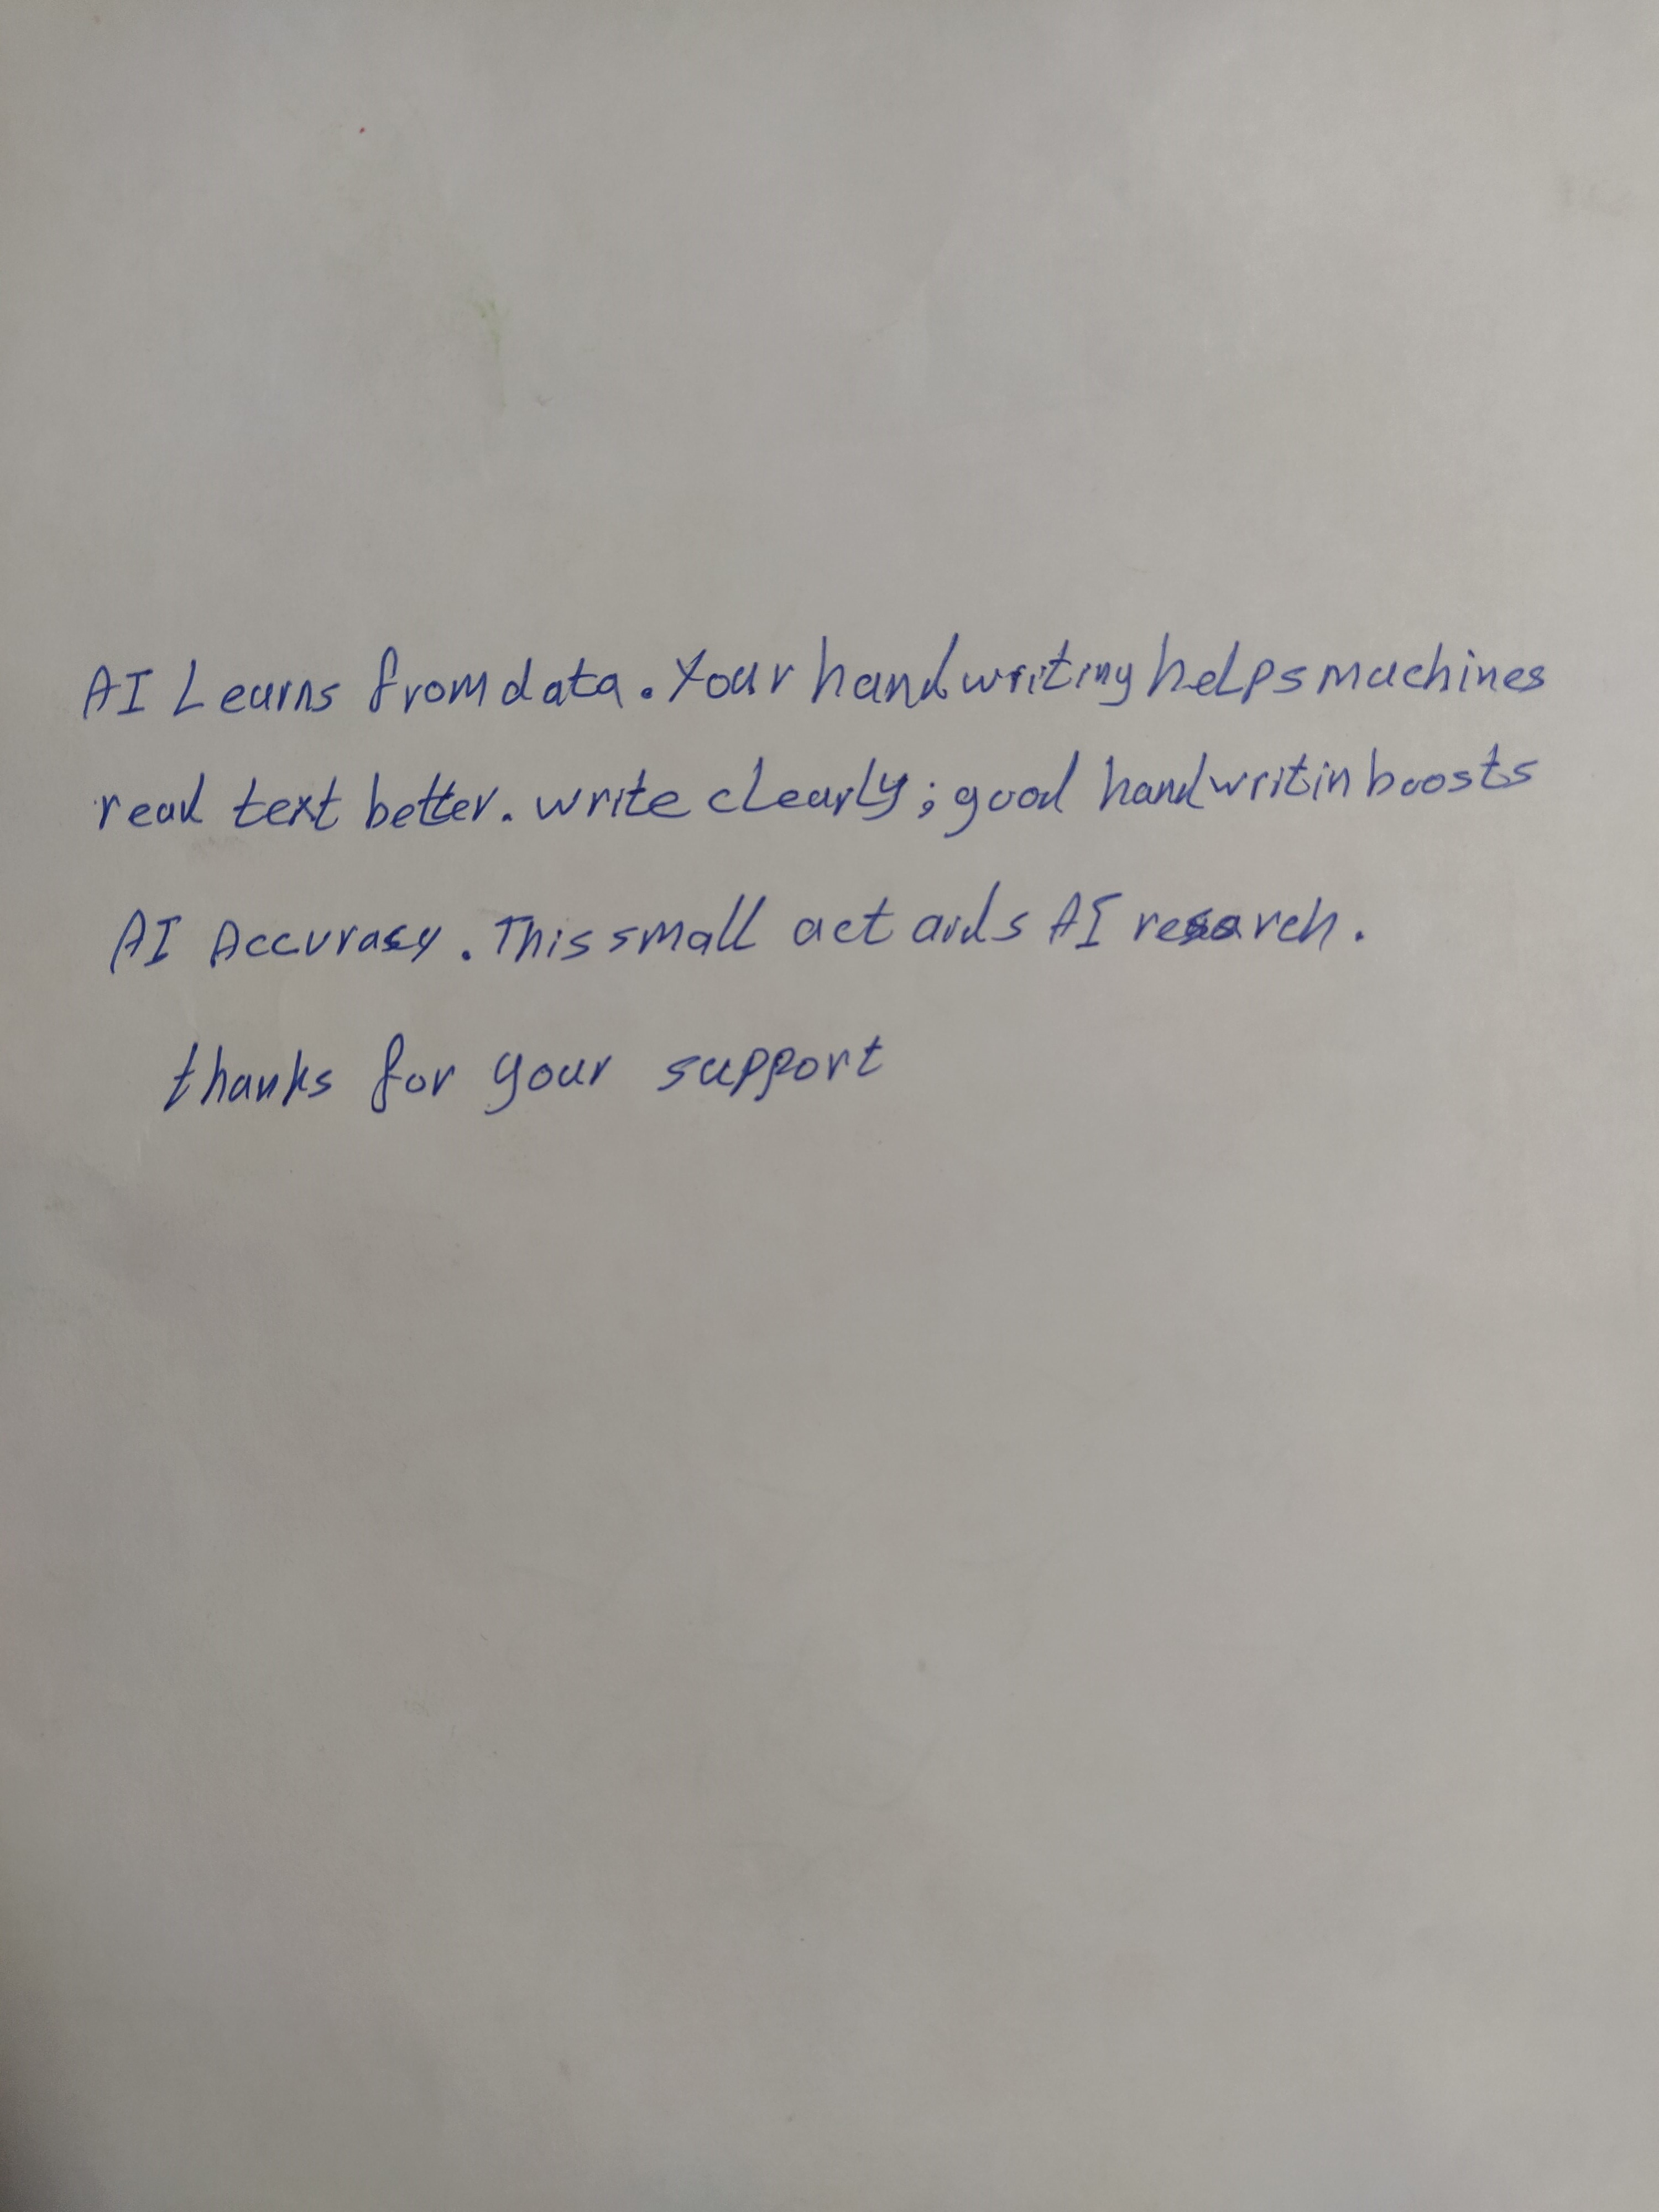 AI Learns from data. Your handwriting helps machines
read text better. write clearly; good handwritin boosts
AI Accurasy. This small act aids AI resarch.
thanks for your support